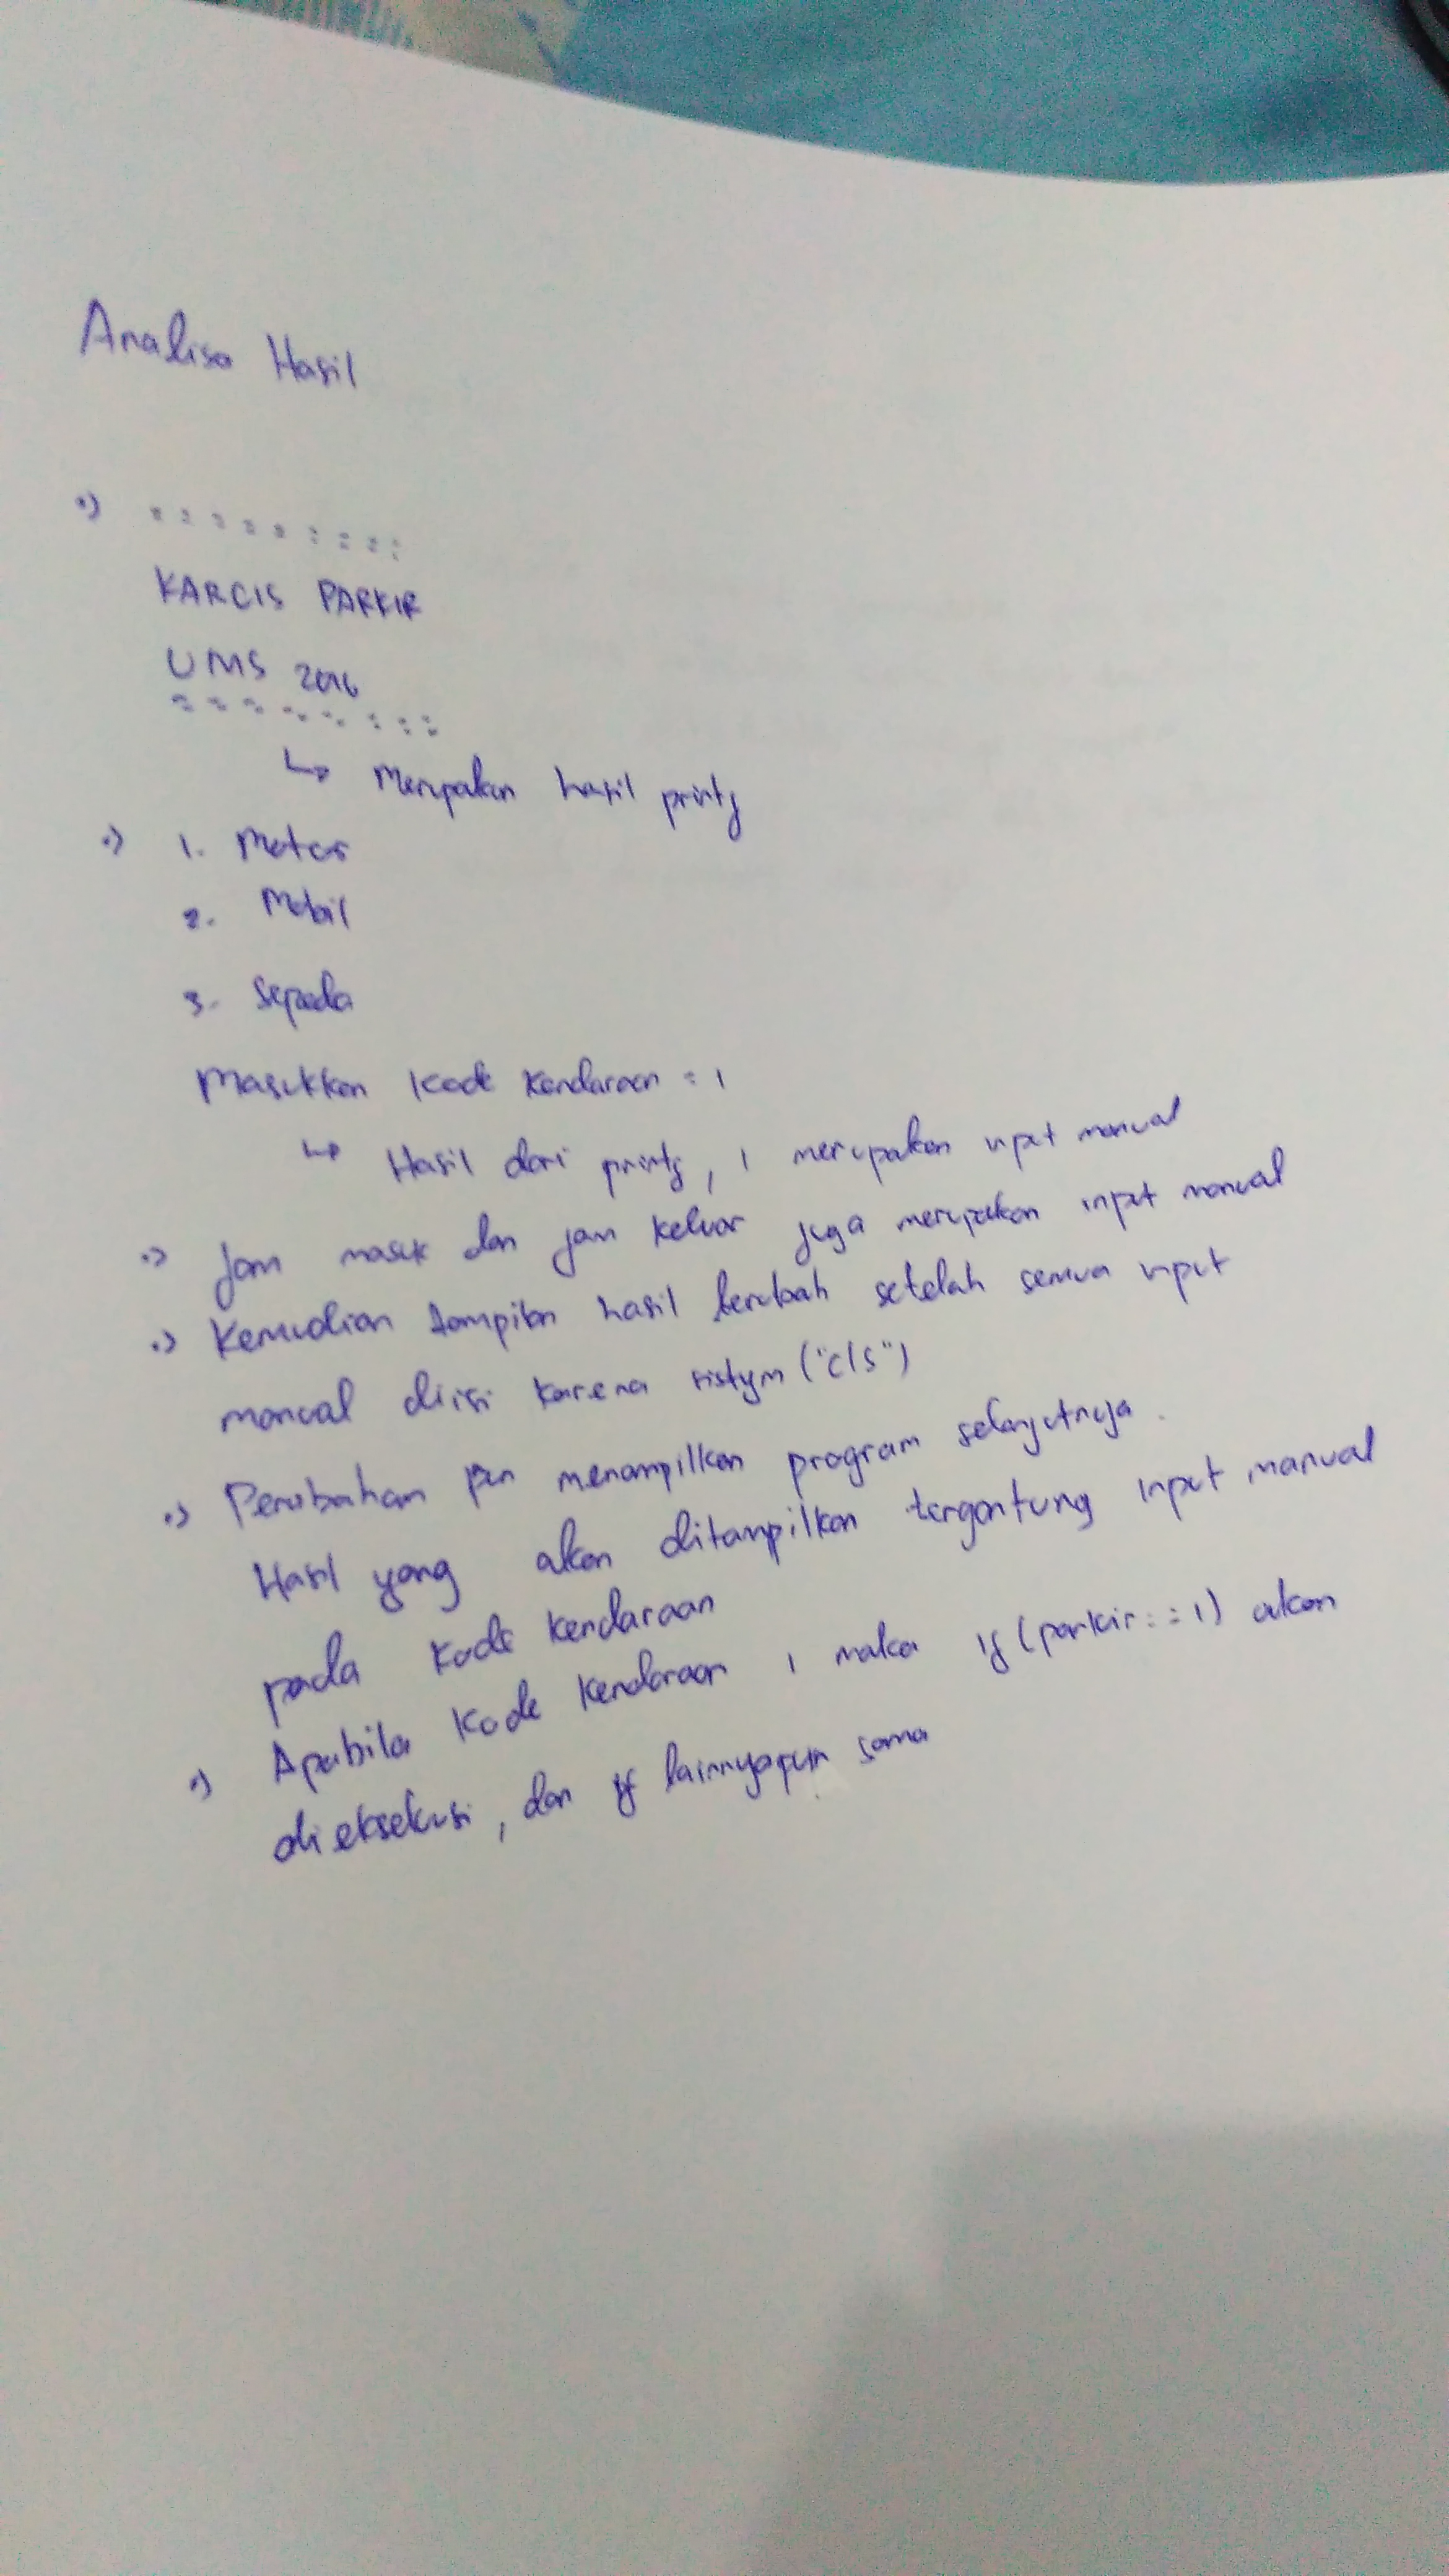 Analisa Hasil
•) = = = = = = = = =
KARCIS PARKIR
UMS 2016
= = = = = = = = =
↳ Merupakan hasil printf
•) 1. Motor
2. Mobil
3. Sepeda
Masukkan kode kendaraan = 1
↳ Hasil dari printf, 1 merupakan input manual
•) Jam masuk dan jam keluar juga merupakan input manual
•) Kemudian tampilan hasil berubah setelah semua input
manual diisi karena sistym ("cls")
•) Perubahan pun menampilkan program selanjutnya.
Hasil yang akan ditampilkan tergantung input manual
pada kode kendaraan
•) Apabila kode kendaraan 1 maka if (parkir==1) akan
dieksekusi, dan if lainnyapun sama